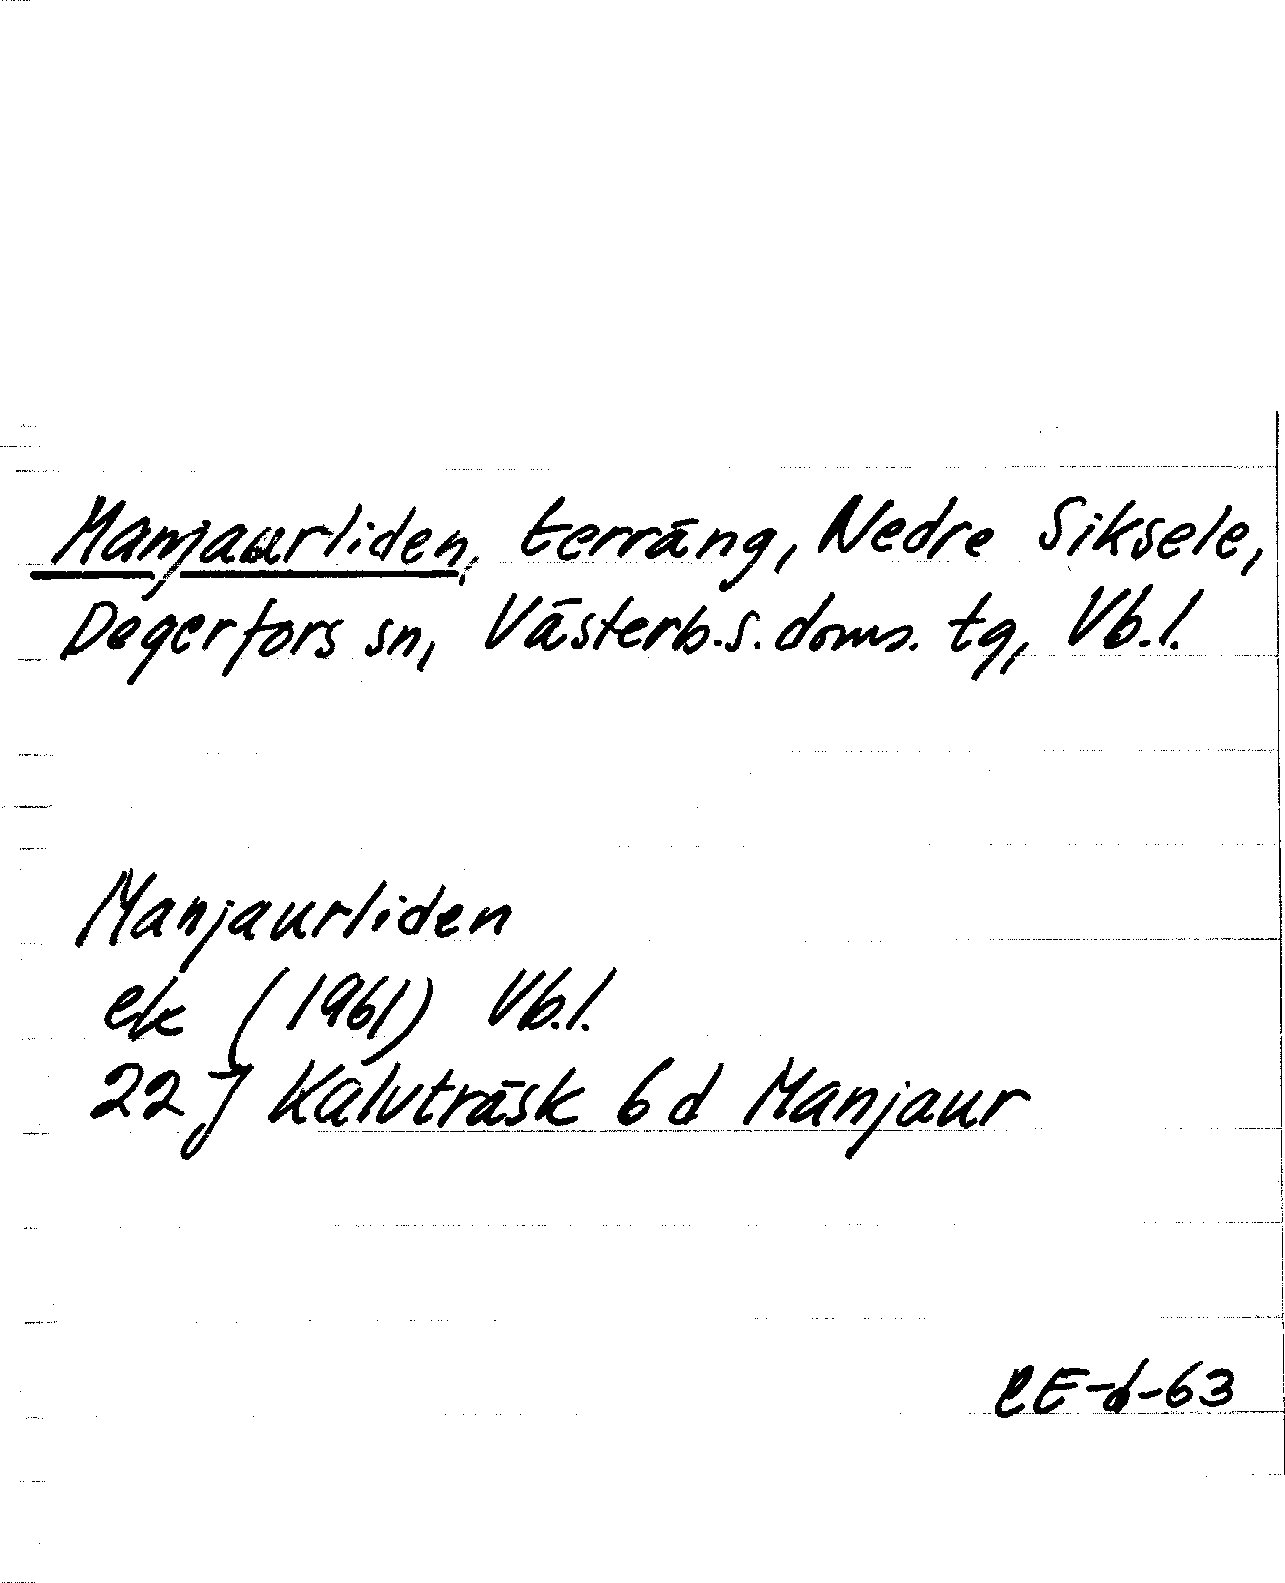 Manjaurliden, terräng, Nedre Siksele,
Degerfors sn, Västerb.s. doms. tg, Vb.l.
Manjaurliden
ek (1961) Vb.l.
22 J Kalvträsk 6 d Manjaur
63